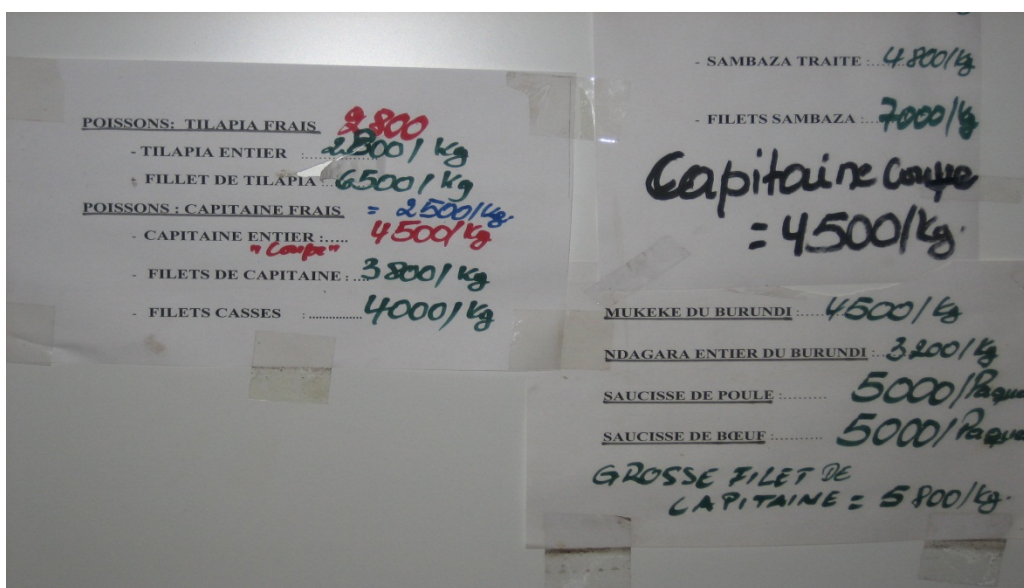 POISSONS: TILAPIA FRAIS 2800
- TILAPIA ENTIER :.............2800/ Kg
- FILLET DE TILAPIA :...6500/ Kg
POISSONS : CAPITAINE FRAIS = 2500/Kg
- CAPITAINE ENTIER :..... 4500/Kg
"Coupe"
- FILETS DE CAPITAINE :....3800/ Kg
- FILETS CASSES : ..............4000/ Kg
- SAMBAZA TRAITE :.....4800/Kg
- FILETS SAMBAZA :....7000/Kg
Capitaine Coupe
= 4500/Kg.
MUKEKE DU BURUNDI :.....4500/ Kg
NDAGARA ENTIER DU BURUNDI :..3200/ Kg
SAUCISSE DE POULE :......... 5000/Paque
SAUCISSE DE BŒUF :.......... 5000/Paque
GROSSE FILET DE
CAPITAINE = 5800/Kg.